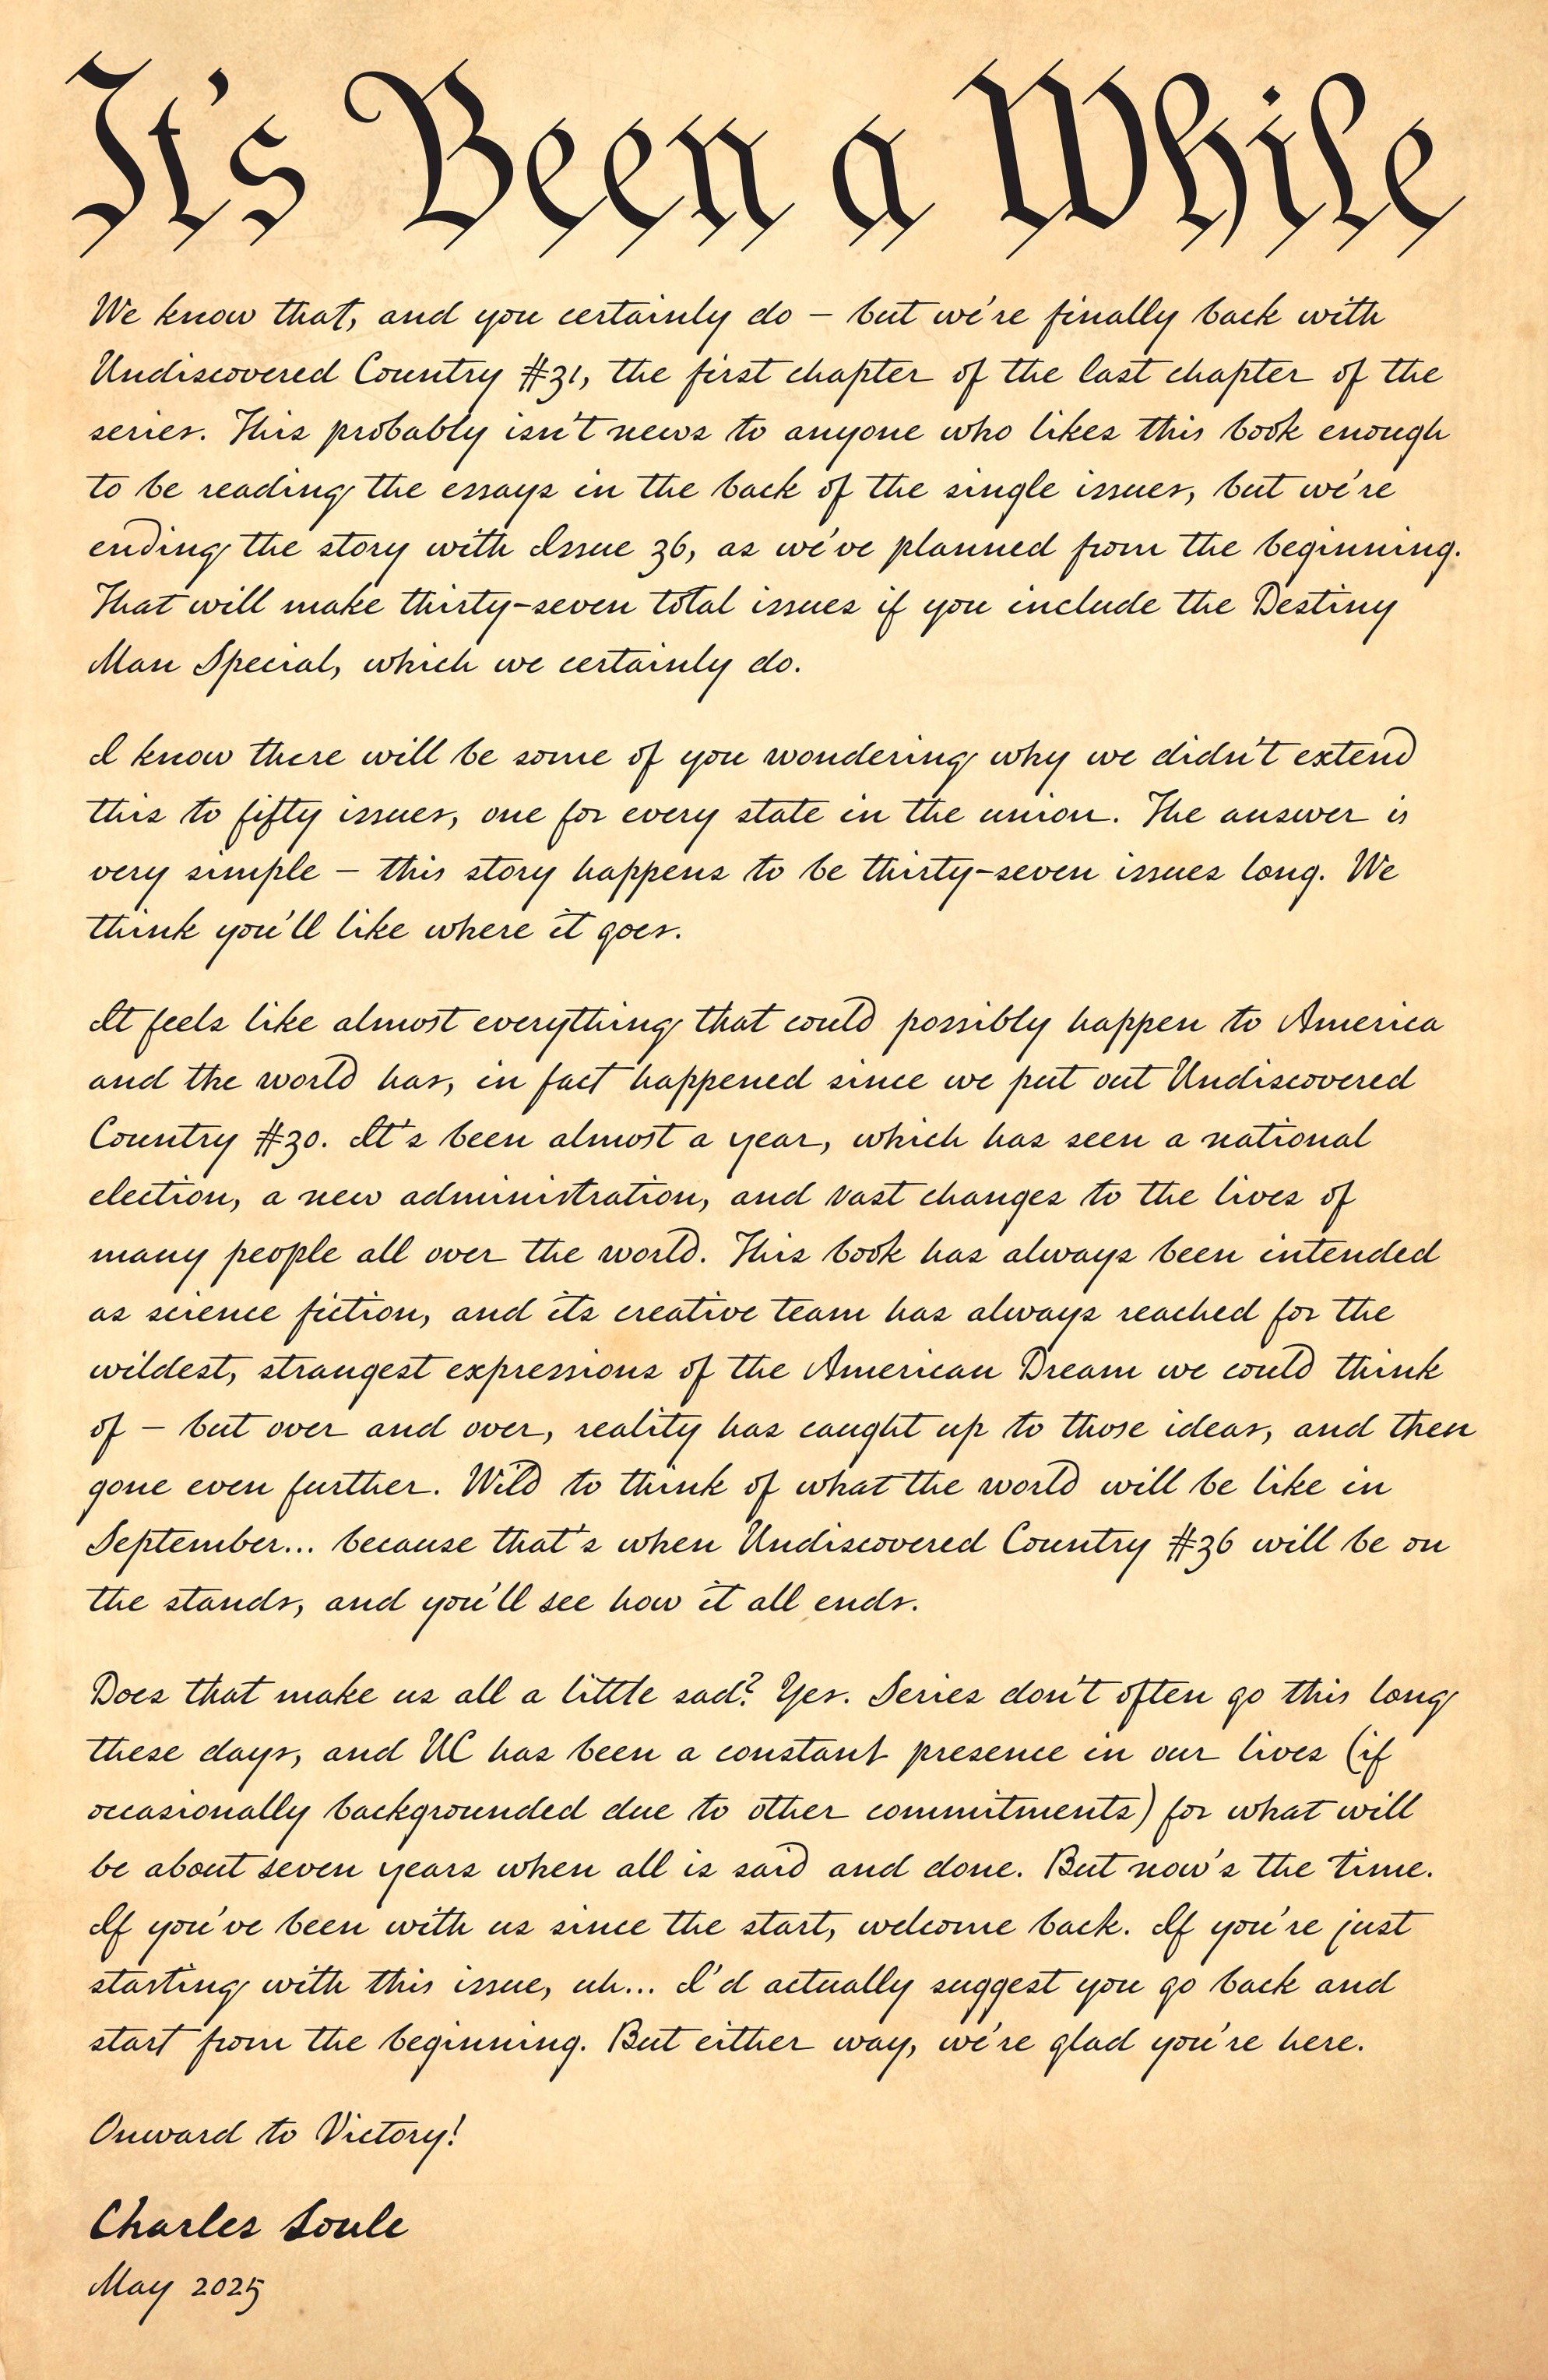 It's Been a While
We know that, and you certainly do – but we're finally back with
Undiscovered Country #31, the first chapter of the last chapter of the
series. This probably isn't news to anyone who likes this book enough
to be reading the essays in the back of the single issues, but we're
ending the story with Issue 36, as we've planned from the beginning.
That will make thirty-seven total issues if you include the Destiny
Man Special, which we certainly do.
I know there will be some of you wondering why we didn't extend
this to fifty issues, one for every state in the union. The answer is
very simple – this story happens to be thirty-seven issues long. We
think you'll like where it goes.
It feels like almost everything that could possibly happen to America
and the world has, in fact happened since we put out Undiscovered
Country #30. It's been almost a year, which has seen a national
election, a new administration, and vast changes to the lives of
many people all over the world. This book has always been intended
as science fiction, and its creative team has always reached for the
wildest, strangest expressions of the American Dream we could think
of – but over and over, reality has caught up to those ideas, and then
gone even further. Wild to think of what the world will be like in
September... because that's when Undiscovered Country #36 will be on
the stands, and you'll see how it all ends.
Does that make us all a little sad? Yes. Series don't often go this long
these days, and UC has been a constant presence in our lives (if
occasionally backgrounded due to other commitments) for what will
be about seven years when all is said and done. But now's the time.
If you've been with us since the start, welcome back. If you're just
starting with this issue, uh... I'd actually suggest you go back and
start from the beginning. But either way, we're glad you're here.
Onward to Victory!
Charles Soule
May 2025